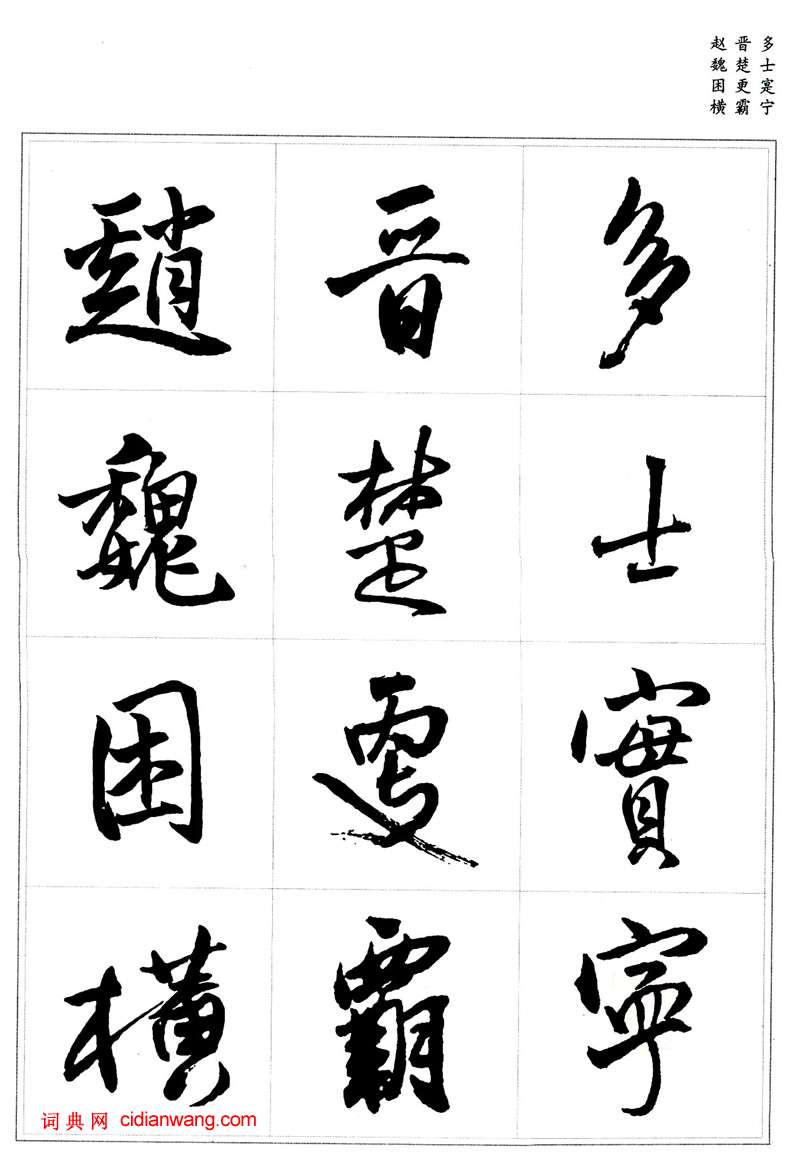 多士寔宁
晋楚更霸
赵魏困横
多士實寧
晋楚更霸
趙魏困横
词典网 cidianwang.com